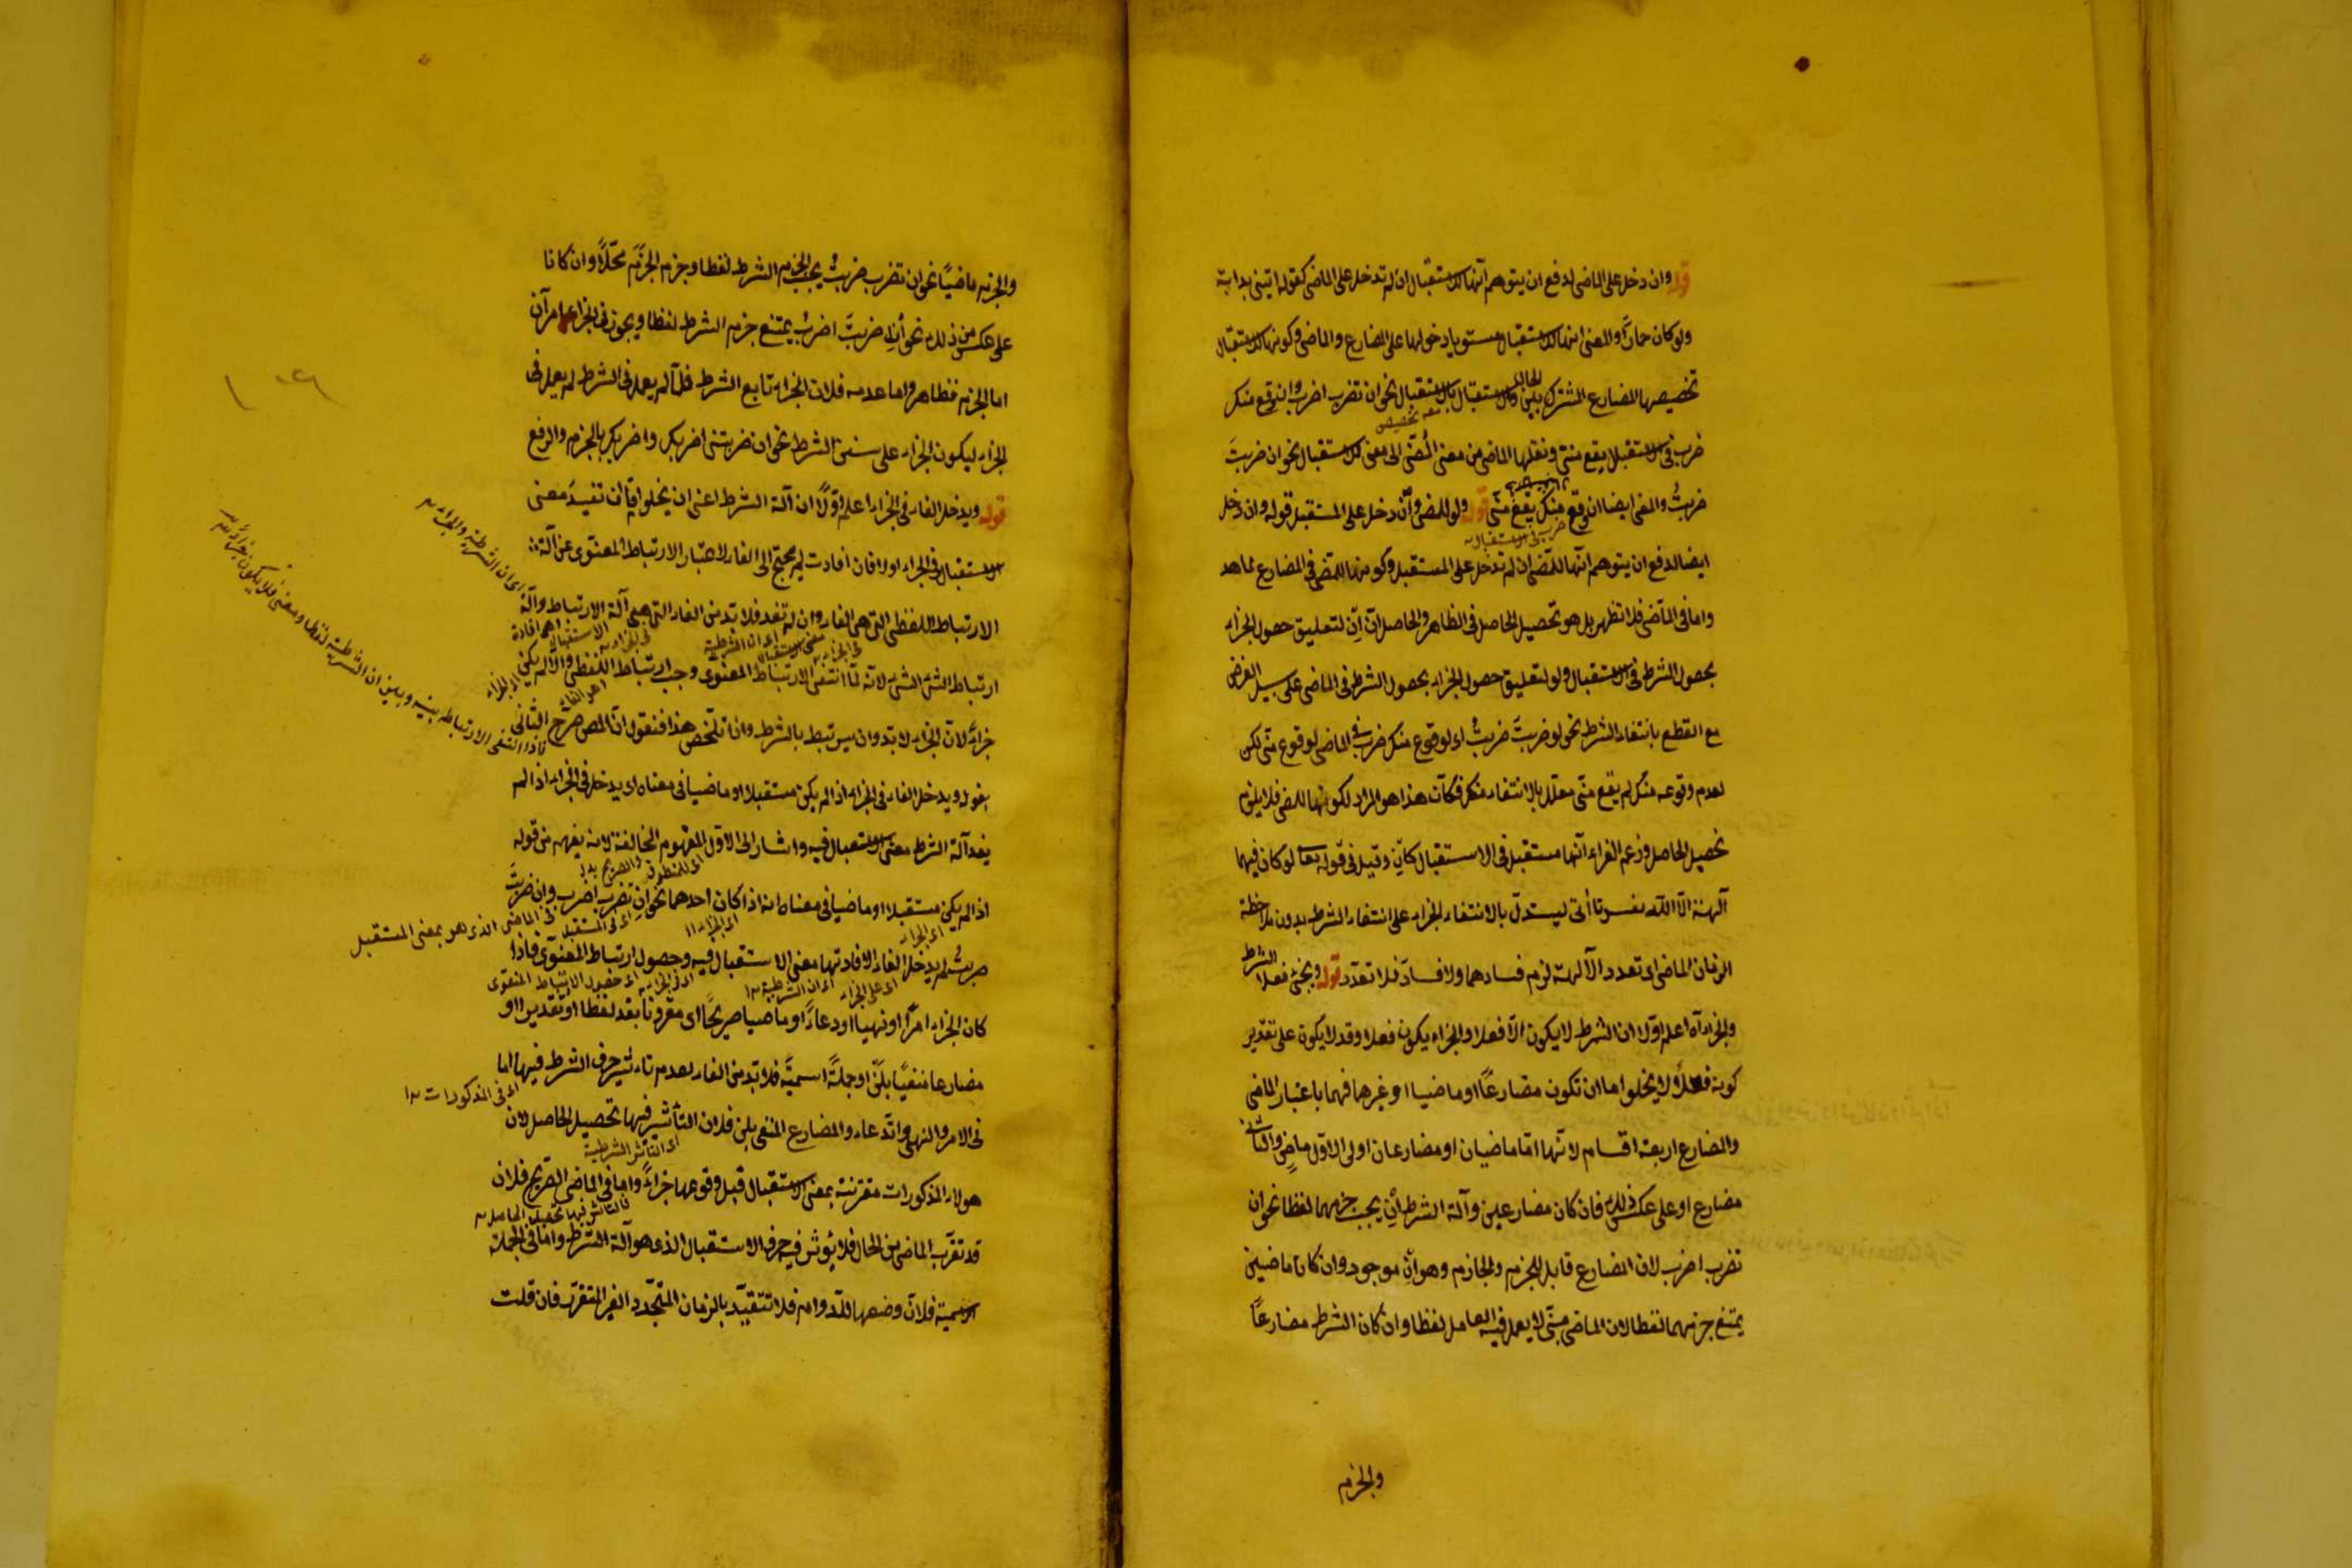 قوله وان دخل على الماضى لدفع ان يتوهم انها للاستقبال ان لم تدخل على الماضى كقوله اتينى بدابة
ولو كان حمارًا والمعنى انها للاستقبال مستويا دخولها على المضارع والماضى وكونها للاستقبال
تخصيصها المضارع المشترك بين الحال والاستقبال بالاستقبال نحو ان تضرب اضرب اى ان وقع منك
ضرب فى الاستقبال يقع منى ونقلها الماضى من معنى المضى الى معنى الاستقبال نحو ان ضربتَ
ضربتُ والمعنى ايضا ان وقع منك يقع منى قوله ولو للمضى وان دخل على المستقبل قوله وان دخل
ايضا لدفع ان يتوهم انها للمضى ان لم تدخل على المستقبل وكونها للمضى فى المضارع ظاهر
واما فى الماضى فلا تظهر بل هو تحصيل الحاصل فى الظاهر والحاصل ان اِن لتعليق حصول الجزاء
بحصول الشرط فى الاستقبال ولو لتعليق حصول الجزاء بحصول الشرط فى الماضى على سبيل الفرض
مع القطع بانتفاء الشرط نحو لو ضربتَ ضربتُ اى لو وقع منك ضرب فى الماضى لوقوع منى لكن
لعدم وقوعه منك لم يقع منى معلل بالانتفاء منك فكان هذا هو المراد لكونها للمضى فلا يلزم
تحصيل الحاصل وزعم الفراء انها مستقبل فى الاستقبال كاِن وقيل فى قوله تعالى لو كان فيهما
آلهة الا الله لفسدتا أتى ليستدل بالانتفاء الجزاء على انتفاء الشرط بدون ملاحظة
الزمان الماضى اى تعدد الآلهة لزم فسادهما ولا فساد فلا تعدد قوله ويجئ فعلا الشرط
والجزاء آه اعلم اوّلا ان الشرط لا يكون الا فعلا والجزاء يكون فعلا وقد لا يكون على تقدير
كونه فعلًا لا يخلو اما ان تكون مضارعًا او ماضيا او غيرهما فهما باعتبار الماضى
والمضارع اربعة اقسام لانهما اما ماضيان او مضارعان او الاول ماضٍ والثانى
مضارع او على عكس ذلك فان كان مضارعين وآلة الشرط أن يجب جزمهما لفظا نحو ان
تضرب اضرب لان المضارع قابل للجزم والجازم وهو اِن موجود وان كانا ماضيين
يمتنع جزمهما لفظا لان الماضى مبنى لا يعمل فيه العامل لفظا وان كان الشرط مضارعًا
والجزم
والجزم ماضيًا نحو ان تضرب ضربتُ يجب الجزم الشرط لفظا وجزم الجزم محلًا وان كانا
على عكس من ذلك نحو أن ضربتَ اضربُ يمتنع جزم الشرط لفظا ويجوز فى الجزاء امران
اما الجزم فظاهر واما عدمه فلان الجزاء تابع الشرط فلما لم يعمل فى الشرط لم يعمل فى
الجزاء ليكون الجزاء على سنن الشرط نحو ان ضربتنى اضربك واضربك بالجزم والرفع
قوله ويدخل الفاء فى الجزاء اعلم اوّلًا ان آلة الشرط اعنى ان يخلو اما ان تفيد معنى
الاستقبال فى الجزاء اولا فان افادت لم يحتج الى الفاء لاعتبار الارتباط المعنوى عن آلة
الارتباط اللفظى التى هى الفاء وان لم تفد فلا بد من الفاء التى هى آلة الارتباط وآلة
ارتباط الشئ الشئ لانه لما انتفى الارتباط المعنوى وجب ارتباط اللفظى والا لم يكن
جزاءً لان الجزاء لا بد وان يرتبط بالشرط وان تلخص هذا فنقول ان المص صرح الثانى
بقوله ويدخل الفاء فى الجزاء اذا لم يكن مستقبلا او ماضيا فى معناه اى يدخل فى الجزاء اذا لم
يفد آلة الشرط معنى الاستقبال فيه واشار الى الاول المفهوم المخالفة لانه يفهم من قوله
اذا لم يكن مستقبلا او ماضيا فى معناه انه اذا كان احدهما نحو ان تضرب اضرب وان ضربتَ
ضربتُ لم يدخل الفاء لافادتها معنى الاستقبال فيه وحصول ارتباط المعنوى فاذا
كان الجزاء امرًا او نهيا او دعاءً او ماضيا صريحًا اى مقرونا بقد لفظا او تقديرا او
مضارعا منفيًا بلن او جملةً اسميةً فلا بد من الفاء لعدم تاثير حرف الشرط فيها اما
فى الامر والنهى والدعاء والمضارع المنفى بلن فلان التأثير فيها تحصيل الحاصل لان
هولاء المذكورات مقترنة بمعنى الاستقبال قبل وقوعها جزاءً واما فى الماضى الصريح فلان
قد تقرب الماضى من الحال فلا يؤثر فيه حرف الاستقبال الذى هو آلة الشرط واما فى الجملة
الاسمية فلان وضعها للدوام فلا تتقيد بالزمان المتجدد الغير المتقرر فان قلت
اى ان الشرطية والجزاء
فاذا انتفى الارتباط بينه وبين ان الشرطية لفظا ومعنى فلا يكون جزاءً له
اى ان الشرطية
فى الماضى الذى هو بمعنى المستقبل
اى حصول الارتباط المعنوى
اى فى المذكورات
اى التاثير الشرطية
فالتاثير فيها تحصيل الحاصل